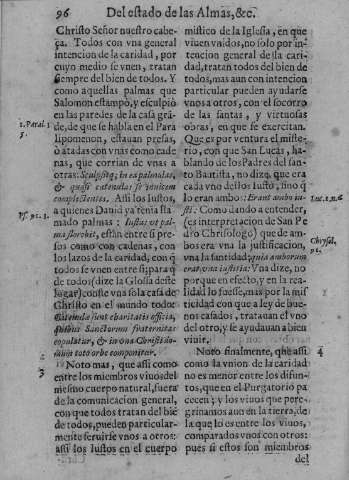 96 Del estado de las Almas, &c.
Christo Señor nuestro cabe-
ça. Todos con vna general
intencion de la caridad, por
cuyo medio se vnen, tratan
siempre del bien de todos. Y
como aquellas palmas que
Salomon estampò, y esculpiò
en las paredes de la casa grã-
de, de que se habla en el Para
lipomenon, estauan presas,
ò atadas con vnas como cade
nas, que corrian de vnas a
otras: Sculpsitq; in ea palmulas,
& quasi catenulas se inuicem
complectentes. Assi los Iustos,
a quienes Dauid ya tenia lla-
mado palmas: Iustus vt pal-
ma florebit, están entre si pre-
sos como con cadenas, con
los lazos de la caridad, con q̃
todos se vnen entre si; para q̃
de todos (dize la Glossa deste
lugar) conste vna sola casa de
Christo en el mundo todo:
Catenulæ sunt charitatis officia,
quibus Sanctorum fraternitas
copulatur, & in vna Christi do-
mum toto orbe componitur.
Noto mas, que assi como
entre los miembros viuos del
mesmo cuerpo natural, fuera
de la comunicacion general,
con que todos tratan del biẽ
de todos, pueden particular-
mente seruirse vnos a otros:
assi los Iustos en el cuerpo
2. Paral. 3
5.
Ps. 91. 3.
3
mistico de la Iglesia, en que
viuen vnidos, no solo por in-
tencion general de la cari-
dad, tratan todos del bien de
todos, mas aun con intencion
particular pueden ayudarse
vnos a otros, con el socorro
de las santas, y virtuosas
obras, en que se exercitan.
Que es por ventura el miste-
rio, con que San Lucas, ha-
blando de los Padres del san-
to Bautista, no dize, que era
cada vno dellos Iusto, sino q̃
lo eran ambo: Erant ambo iu-
sti: Como dando a entender,
(es interpretacion de San Pe
dro Chrisologo) que de am-
bos era vna la justificacion,
vna la santidad: quia amborum
erat vna iustitia: Vna dize, no
porque en efecto, y en la rea-
lidad lo fuesse, mas por la mis
ticidad con que a ley de bue-
nos casados, tratauan el vno
del otro, y se ayudauan a bien
viuir.
Noto finalmente, que assi
como la vnion de la caridad
no es menor entre los difun-
tos, que en el Purgatorio pa
decen; y los viuos que pere-
grinamos aun en la tierra, de
la que lo es entre los viuos,
comparados vnos con otros:
pues si estos son miembros
del
Luc. 1. n. 6
Chrysol.
91.
4